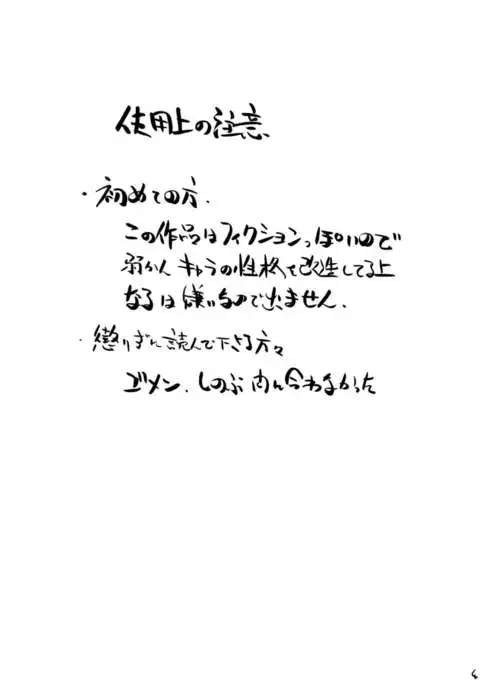 使用上の注意
・初めての方.
この作品はフィクションっぽいので
弱かん キャラの性格も改生してる上
なるは嫌いなので出ません.
・懲りずに読んで下さる方々
ゴメン. しのぶ 間に合わなかった